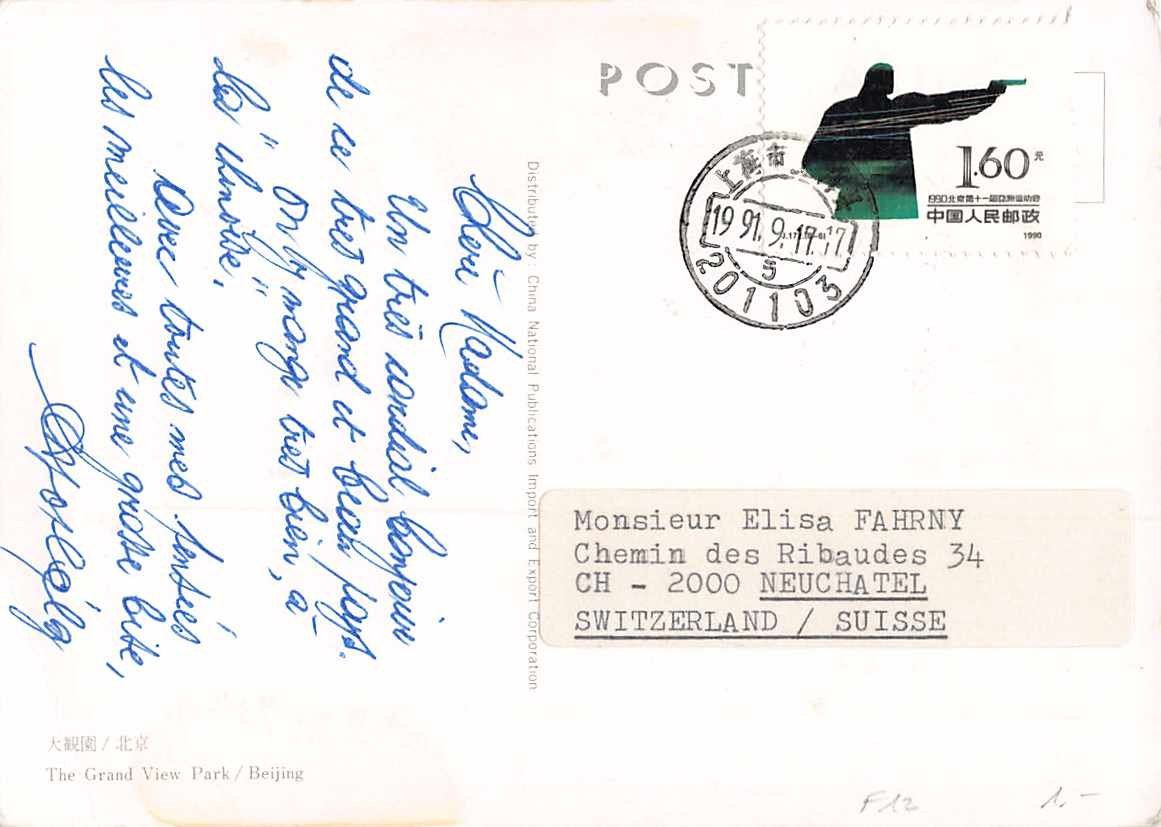 Cheri Madame,
Un très cordial bonjour
de ce très grand et beau pays.
On y mange très bien, à
la "chinoise".
Avec toutes mes pensées
les meilleures et une grosse bise,
POST
1.60元
1990北京第十一届亚洲运动会
中国人民邮政
1990
上海市
1991.9.17.17
5
201103
Distributed by China National Publications Import and Export Corporation
Monsieur Elisa FAHRNY
Chemin des Ribaudes 34
CH - 2000 NEUCHATEL
SWITZERLAND / SUISSE
大観園/北京
The Grand View Park/Beijing
F12
1.-